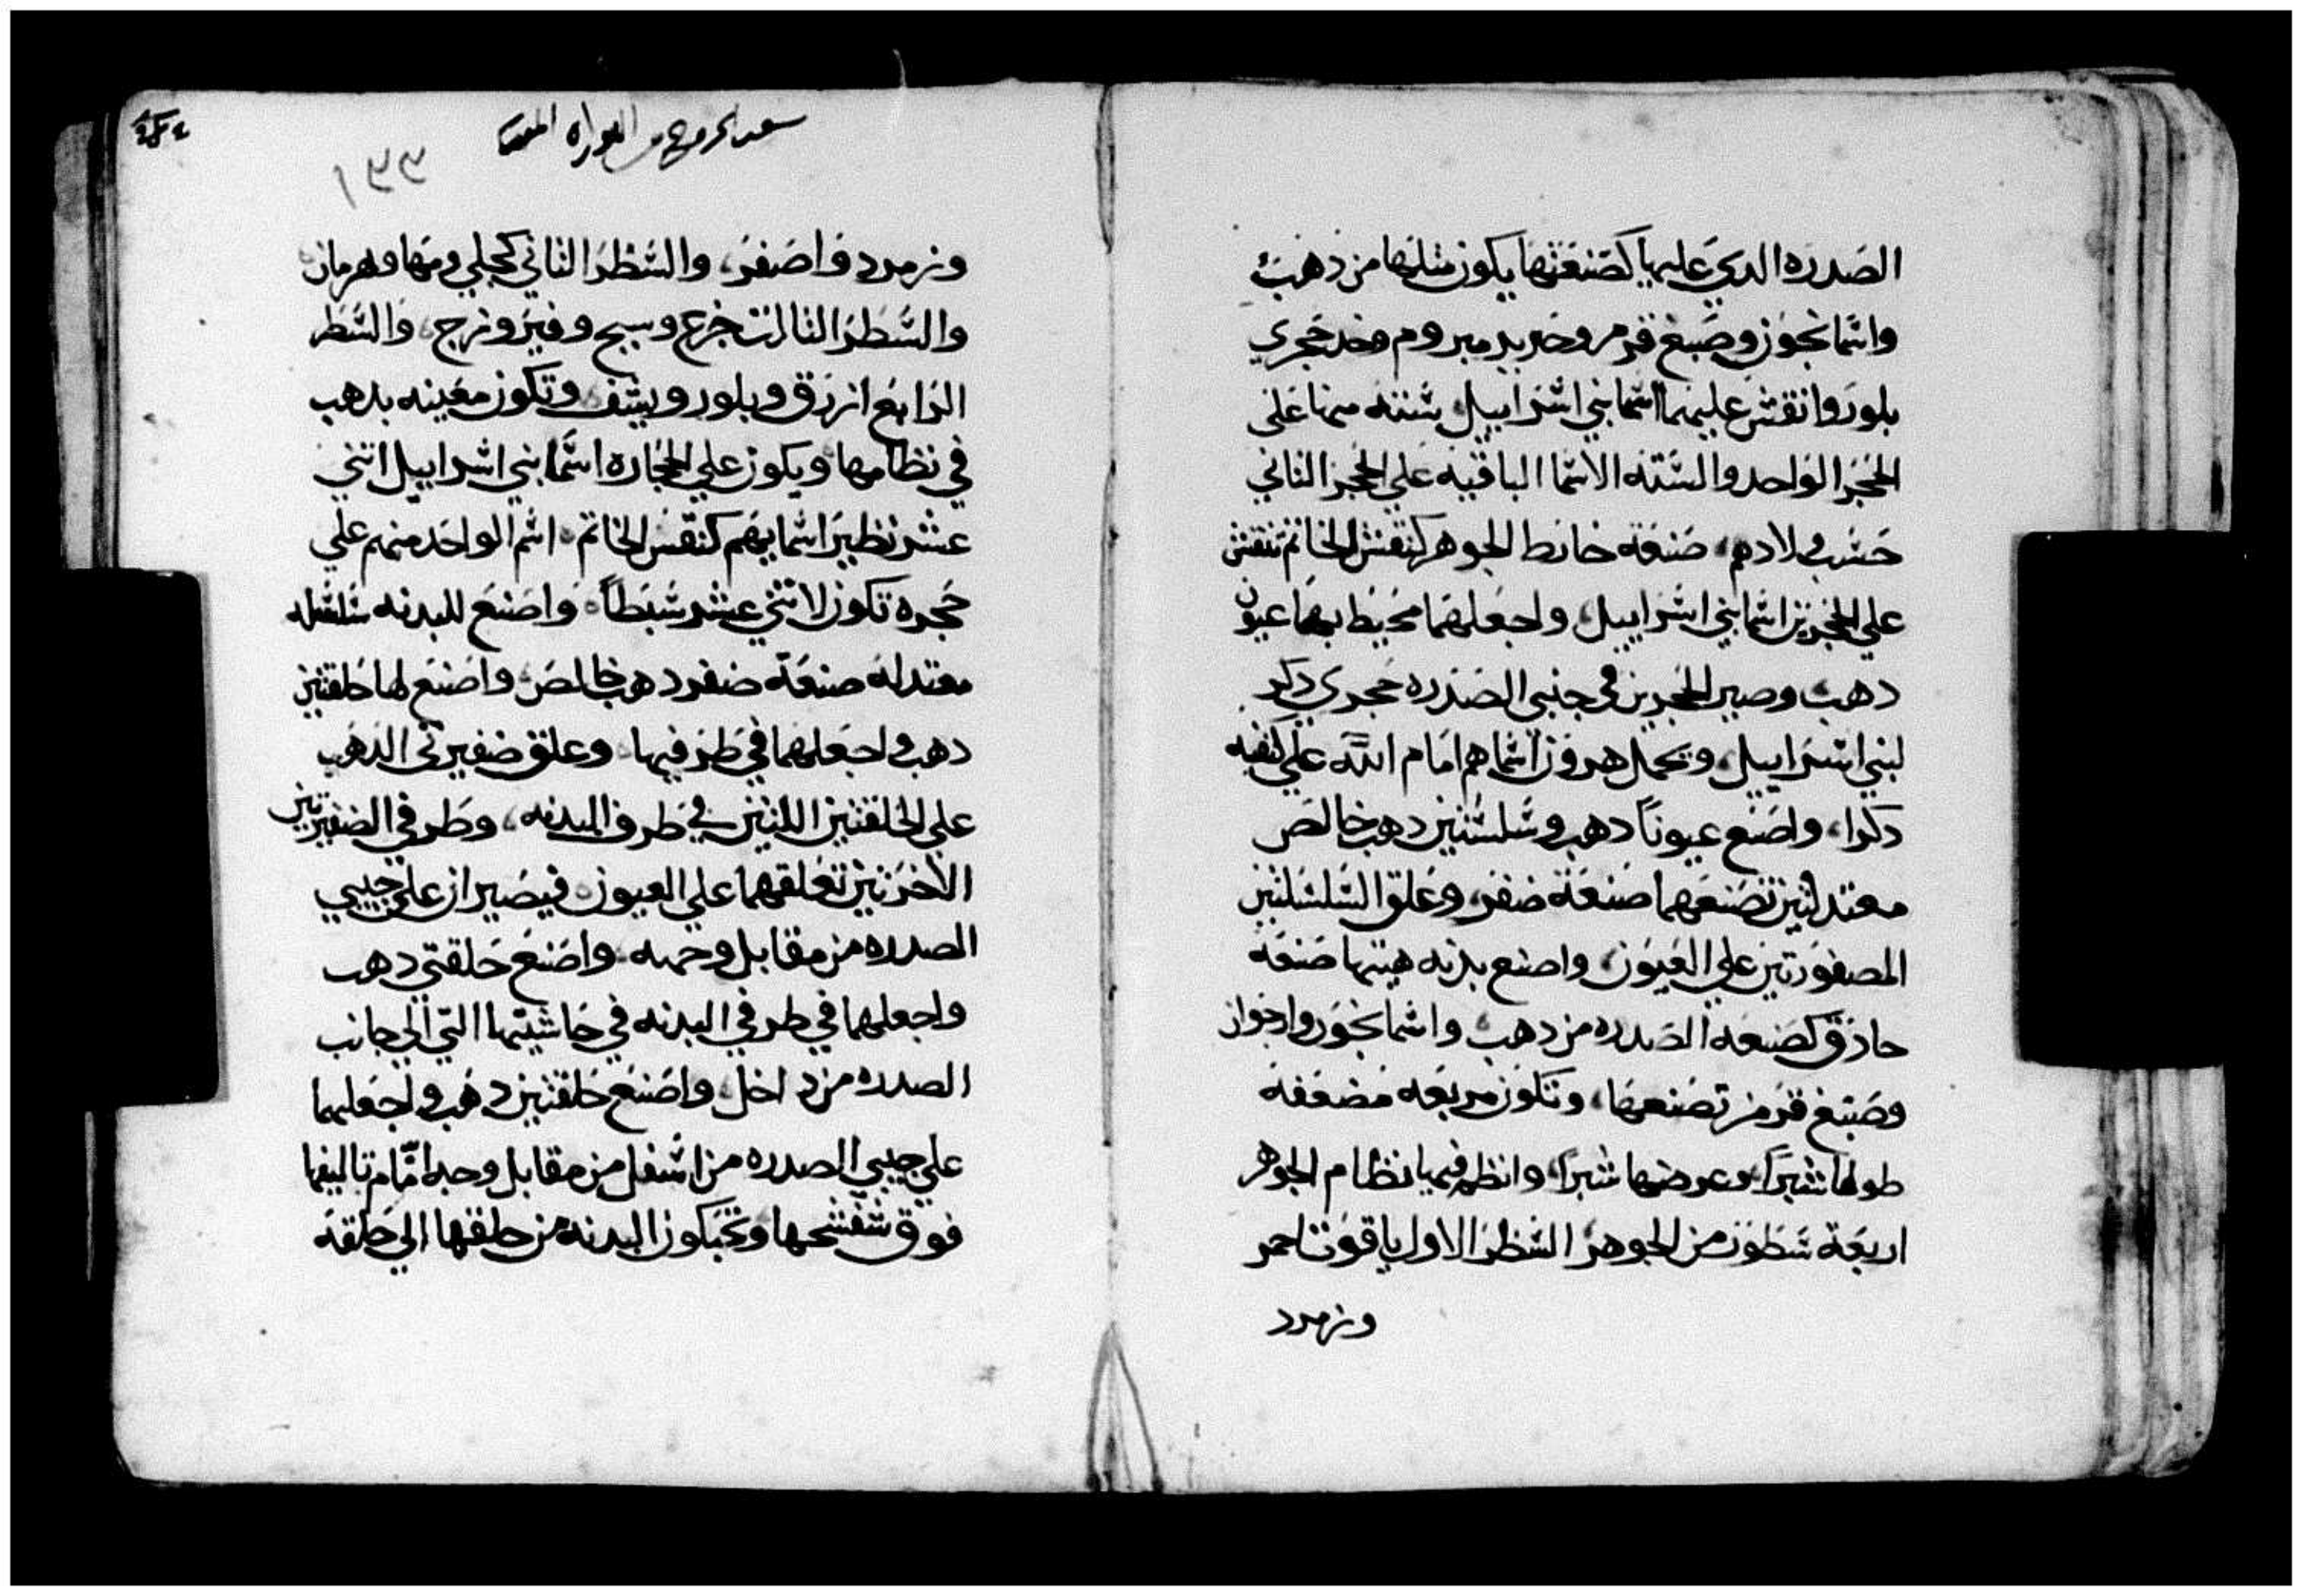 الصدره الدي عليها كصنعتها يكون مثلها من دهب
واسمانجون وصبغ قرمز وحرير مبروم وخد حجري
بلور وانقش عليهما اسما بني اسراييل ستته منها علي
الحجر الواحد والسته الاسما الباقيه علي الحجر الثاني
حسب ولادهم، صنعة خارط الجوهر كنقش الخاتم تنقش
علي الحجرين اسما بني اسراييل، واجعلهما محيط بهما عيون
دهب وصير الحجرين في جنبي الصدره حجري دكر
لبني اسراييل، ويحمل هرون اسماهم امام الله علي كتفيه
دكرا، واصنع عيوناً دهب وسلسلتين دهب خالص
معتدلتين تصنعهما صنعة ضفر، وعلق السلسلتين
المصفورتين علي العيون، واصنع بدنه هيتها صنعة
حادق كصنعه الصدره من دهب واسمانجون وارجوان
وصبغ قرمز تصنعها، وتكون مربعه مضعفه
طولها شبرًا وعرضها شبرًا، وانظم فيها نظام الجوهر
اربعة سطور من الجوهر السطر الاول ياقوت احمر
وزمرد
سفر الخروج من التوراه المقدسه
١٩٩
وزمرد واصفر، والسطر الثاني كحلي ومها وبهرمان
والسطر الثالث جزع وسبج وفيروزج، والسطر
الرابع ازرق وبلور ويشف وتكون معينه بدهب
في نظامها ويكون علي الحجاره اسما بني اسراييل اثني
عشر نظير اسمايهم كنقش الخاتم، اسم الواحد منهم علي
حجره تكون لاثني عشر سبطاً، واصنع للبدنه سلسله
معتدله صنعة ضفر دهب خالص، واصنع لها حلقتين
دهب واجعلهما في طرفيها، وعلق ضفيرتي الدهب
علي الحلقتين اللتين في طرف البدنه، وطرفي الضفيرتين
الاخرتين تعلقهما علي العيون فيصيران علي جيبي
الصدره من مقابل وجهه واصنع حلقتي دهب
واجعلهما في طرفي البدنه في حاشيتها التي الي جانب
الصدره من داخل، واصنع حلقتين دهب واجعلهما
علي جيبي الصدره من اسفل من مقابل وجه امّام تاليفها
فوق شفشحها وتحبكون البدنه من حلقها الي حلقة